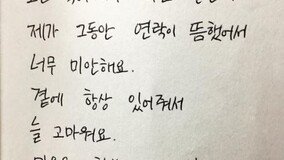 제가 그동안 연락이 뜸했어서
너무 미안해요.
곁에 항상 있어줘서
늘 고마워요.